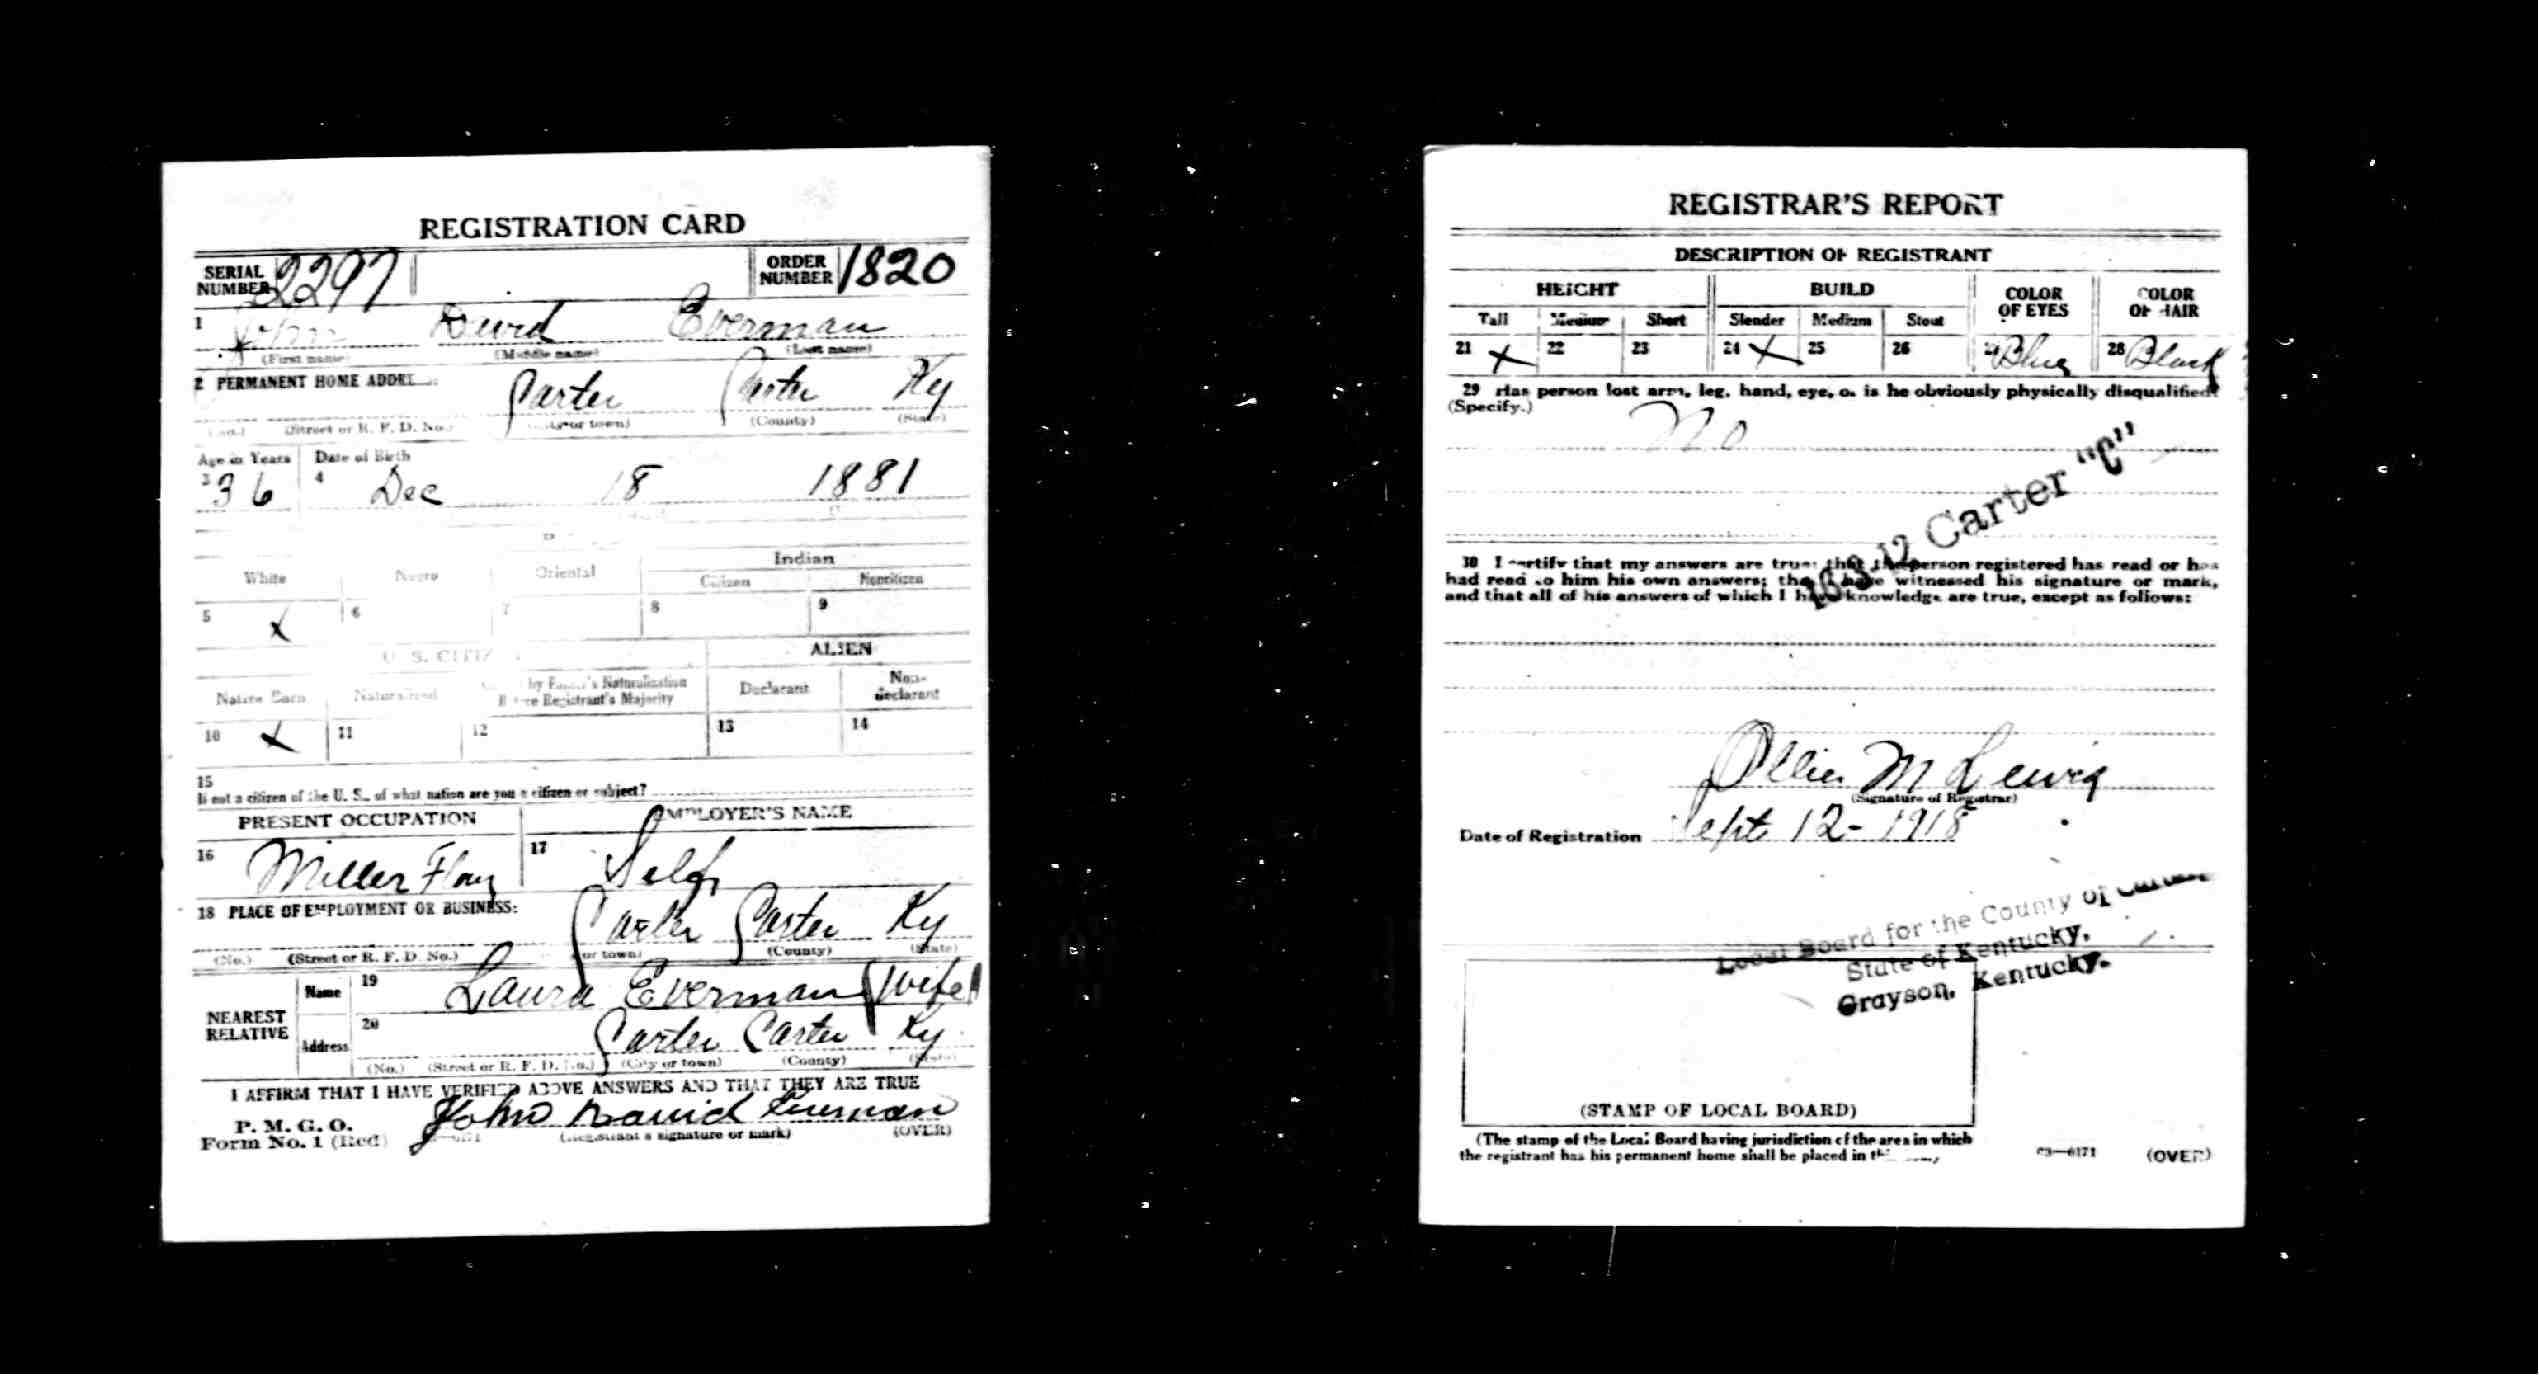 REGISTRATION CARD
SERIAL NUMBER 2297 ORDER NUMBER 1820
1 John David Everman
(First name) (Middle name) (Last name)
2 PERMANENT HOME
Carter Carter Ky
(Street or R. F. D. No.) or town) (County) (State)
Age in Years Date of Birth
3 36 4 Dec 18 1881
Indian
White Negro Oriental Citizen Noncitizen
5 x 6 7 8 9
U. S. ALIEN
Native Born Naturalized by Father's Naturalization Before Registrant's Majority Declarant Non-declarant
10 x 11 12 13 14
15
If not a citizen of the U. S., of what nation are you a citizen or subject?
PRESENT OCCUPATION EMPLOYER'S NAME
16 Miller 17 Self
18 PLACE OF EMPLOYMENT OR BUSINESS:
Carter Carter Ky
(No.) (Street or R. F. D. No.) or town) (County) (State)
NEAREST RELATIVE Name 19 Laura Everman (Wife)
Address 20 Carter Carter Ky
(No.) (Street or R. F. D. No.) (City or town) (County) (State)
I AFFIRM THAT I HAVE VERIFIED ABOVE ANSWERS AND THAT THEY ARE TRUE
P. M. G. O.
Form No. 1 (Red) John David Everman
(Registrant's signature or mark) (OVER)
REGISTRAR'S REPORT
DESCRIPTION OF REGISTRANT
HEIGHT BUILD COLOR OF EYES COLOR OF HAIR
Tall Medium Short Slender Medium Stout
21 x 22 23 24 x 25 26 Blue 28 Black
29 Has person lost arm, leg, hand, eye, or is he obviously physically disqualified?
(Specify.)
No
16-3-12 Carter "C"
30 I certify that my answers are true; that the person registered has read or has
had read to him his own answers; that I have witnessed his signature or mark,
and that all of his answers of which I have knowledge are true, except as follows:
Ollie M Lewis
(Signature of Registrar)
Date of Registration Sept 12 - 1918
Local Board for the County of Carter,
State of Kentucky,
Grayson, Kentucky.
(STAMP OF LOCAL BOARD)
(The stamp of the Local Board having jurisdiction of the area in which
the registrant has his permanent home shall be placed in
03-6171 (OVER)